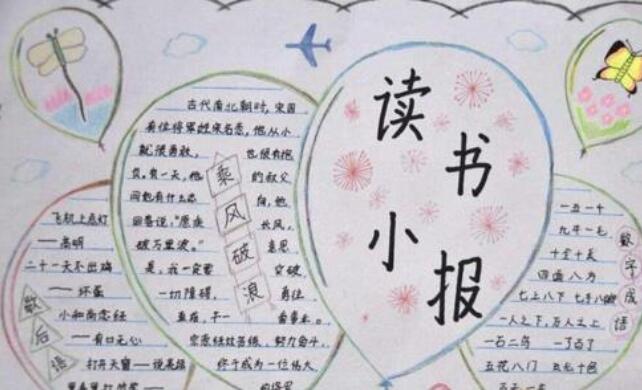 读书
小报
古代南北朝时,宋国
有位将军姓宋名悫,他从小
就很勇敢,也很有抱
负。有一天,他的叔父
问他有什么志向,他
回答说,“愿乘长风,
破万里浪。”意思
是,我一定要突破
一切障碍,勇往
直前,干一番事业。
宗悫经过苦练,努力奋斗,
终于成为一位伟大
乘风破浪
飞机上点灯
——高明
二十一天不出鸡
——坏蛋
小和尚念经
——有口无心
打开天窗——说亮话
歇后语
一五一十
九牛一毛
十全十美
四面八方
七上八下 七手八脚
一人之下,万人之上
一石二鸟 一了百了
五花八门 五光十色
百无一
数字成语